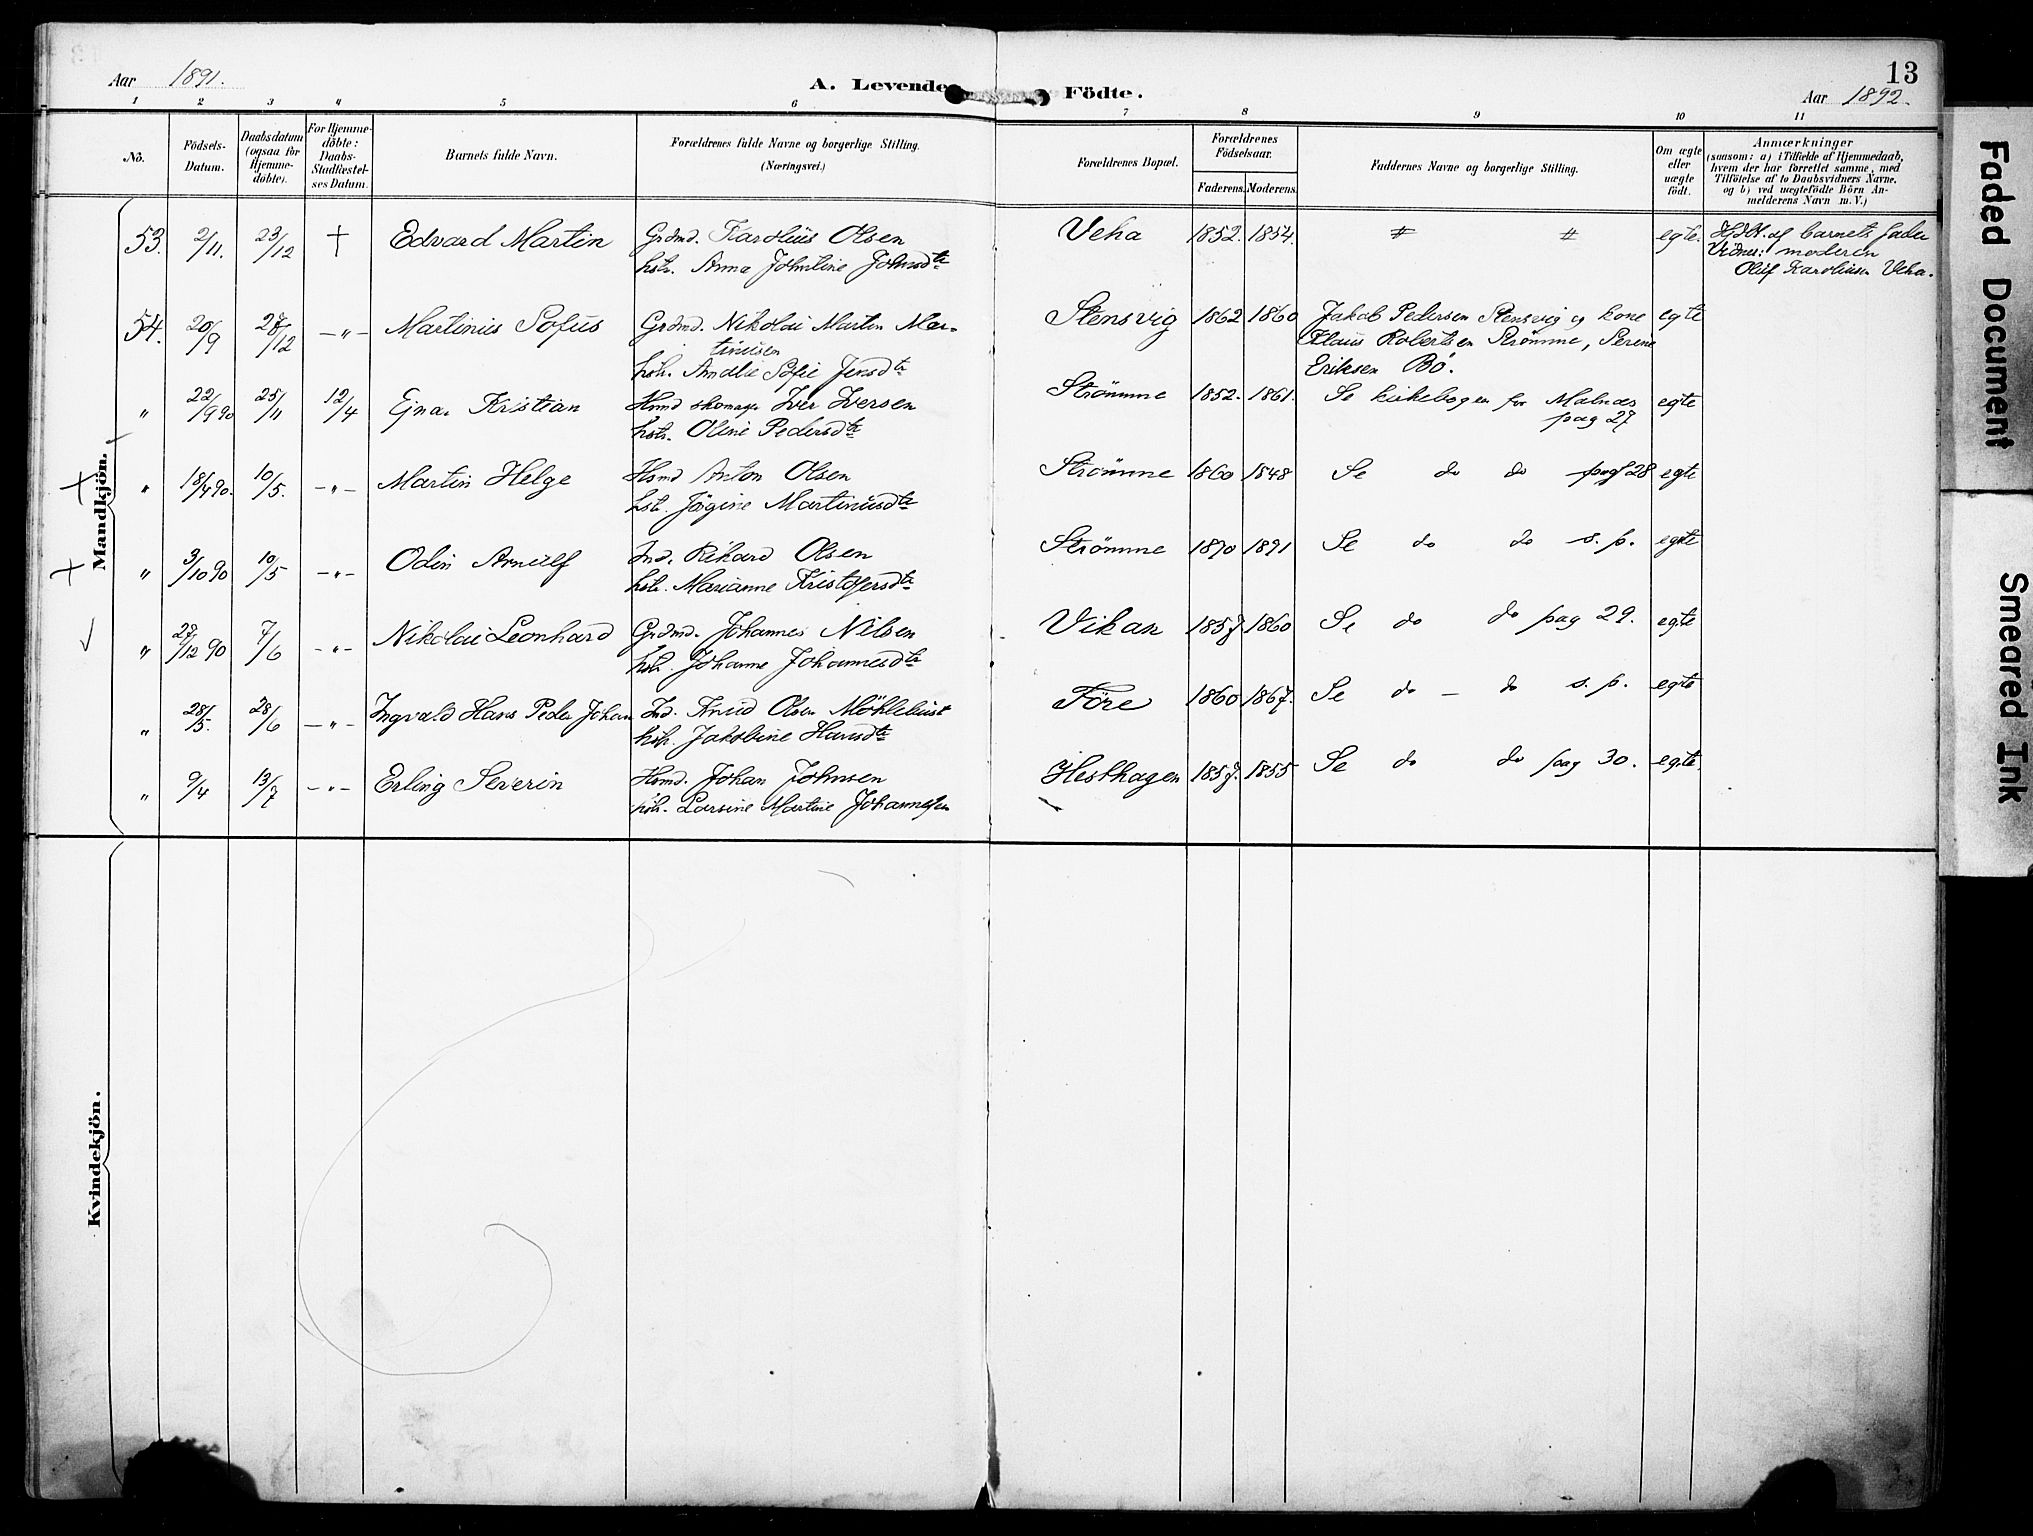 Aar 1891.
A. Levende Födte.
13
Aar 1892.
1 2 3 4 5 6 7 8 9 10 11
No.
Födsels-Datum.
Daabsdatum (ogsaa for Hjemme-döbte).
For Hjemme-döbte: Daabs-Stadfæstel-ses Datum.
Barnets fulde Navn.
Forældrenes fulde Navne og borgerlige Stilling. (Næringsvei.)
Forældrenes Bopæl.
Forældrenes Födselsaar.
Faderens. Moderens.
Faddernes Navne og borgerlige Stilling.
Om ægte eller uægte födt.
Anmærkninger
(saasom: a) i Tilfælde af Hjemmedaab,
hvem der har forrettet samme, med
Tilföielse af to Daabsvidners Navne,
og b) ved uægtefödte Börn An-
melderens Navn m. V.)
Mandkjön.
53. 2/11. 23/12 † Edvard Martin Grdmd. Karolius Olsen Veha 1852. 1854. # # egte. Hjdbt. af barnets fader
hstr. Anna Johntine Johnsdtr Vidner: moderen
Oluf Karoliusen Veha.
54. 20/9 28/12 -"- Martinus Sofus Grdmd. Nikolai Martin Mar- Stensvig 1862 1860 Jakob Pedersen Stensvig og kone egte
tinusen Klaus Robertsen Strömme, Serene
hstr. Amalie Sofie Jensdtr Eriksen Bö.
" 22/9 90 25/11 12/4 Ejnar Kristian Hsmd skomager Iver Iversen Strömme 1852. 1861. Se kirkebogen for Malnes egte
hstr. Oline Pedersdtr pag 27
" 18/4 90. 10/5. -"- Martin Helge Hsmd Anton Olsen Strömme 1860 1848 Se do do pag 28 egte
hstr. Jörgine Martinusdtr
" 3/10 90 10/5 -"- Odin Arnulf Ind. Rikard Olsen Strömme 1890 1891 Se do do s. p. egte
hstr. Marianne Kristofersdtr
" 27/12 90 7/6 -"- Nikolai Leonhard Grdmd. Johannes Nilsen Vikan 1857 1860 Se do do pag 29. egte
hstr. Johanne Johannesdtr
" 28/5. 28/6 -"- Ingvald Hans Peder Johan Ind. Knud Olsen Möklebust Före 1860 1867. Se do - do s. p. egte
hstr. Jakobine Hansdtr
" 9/4 13/7 -"- Erling Severin Hsmd. Johan Johnsen Hesthagen 1857. 1855 Se do do pag 30. egte.
hstr. Larsine Martine Johannesen
Kvindekjön.
Faded Document
Smeared Ink